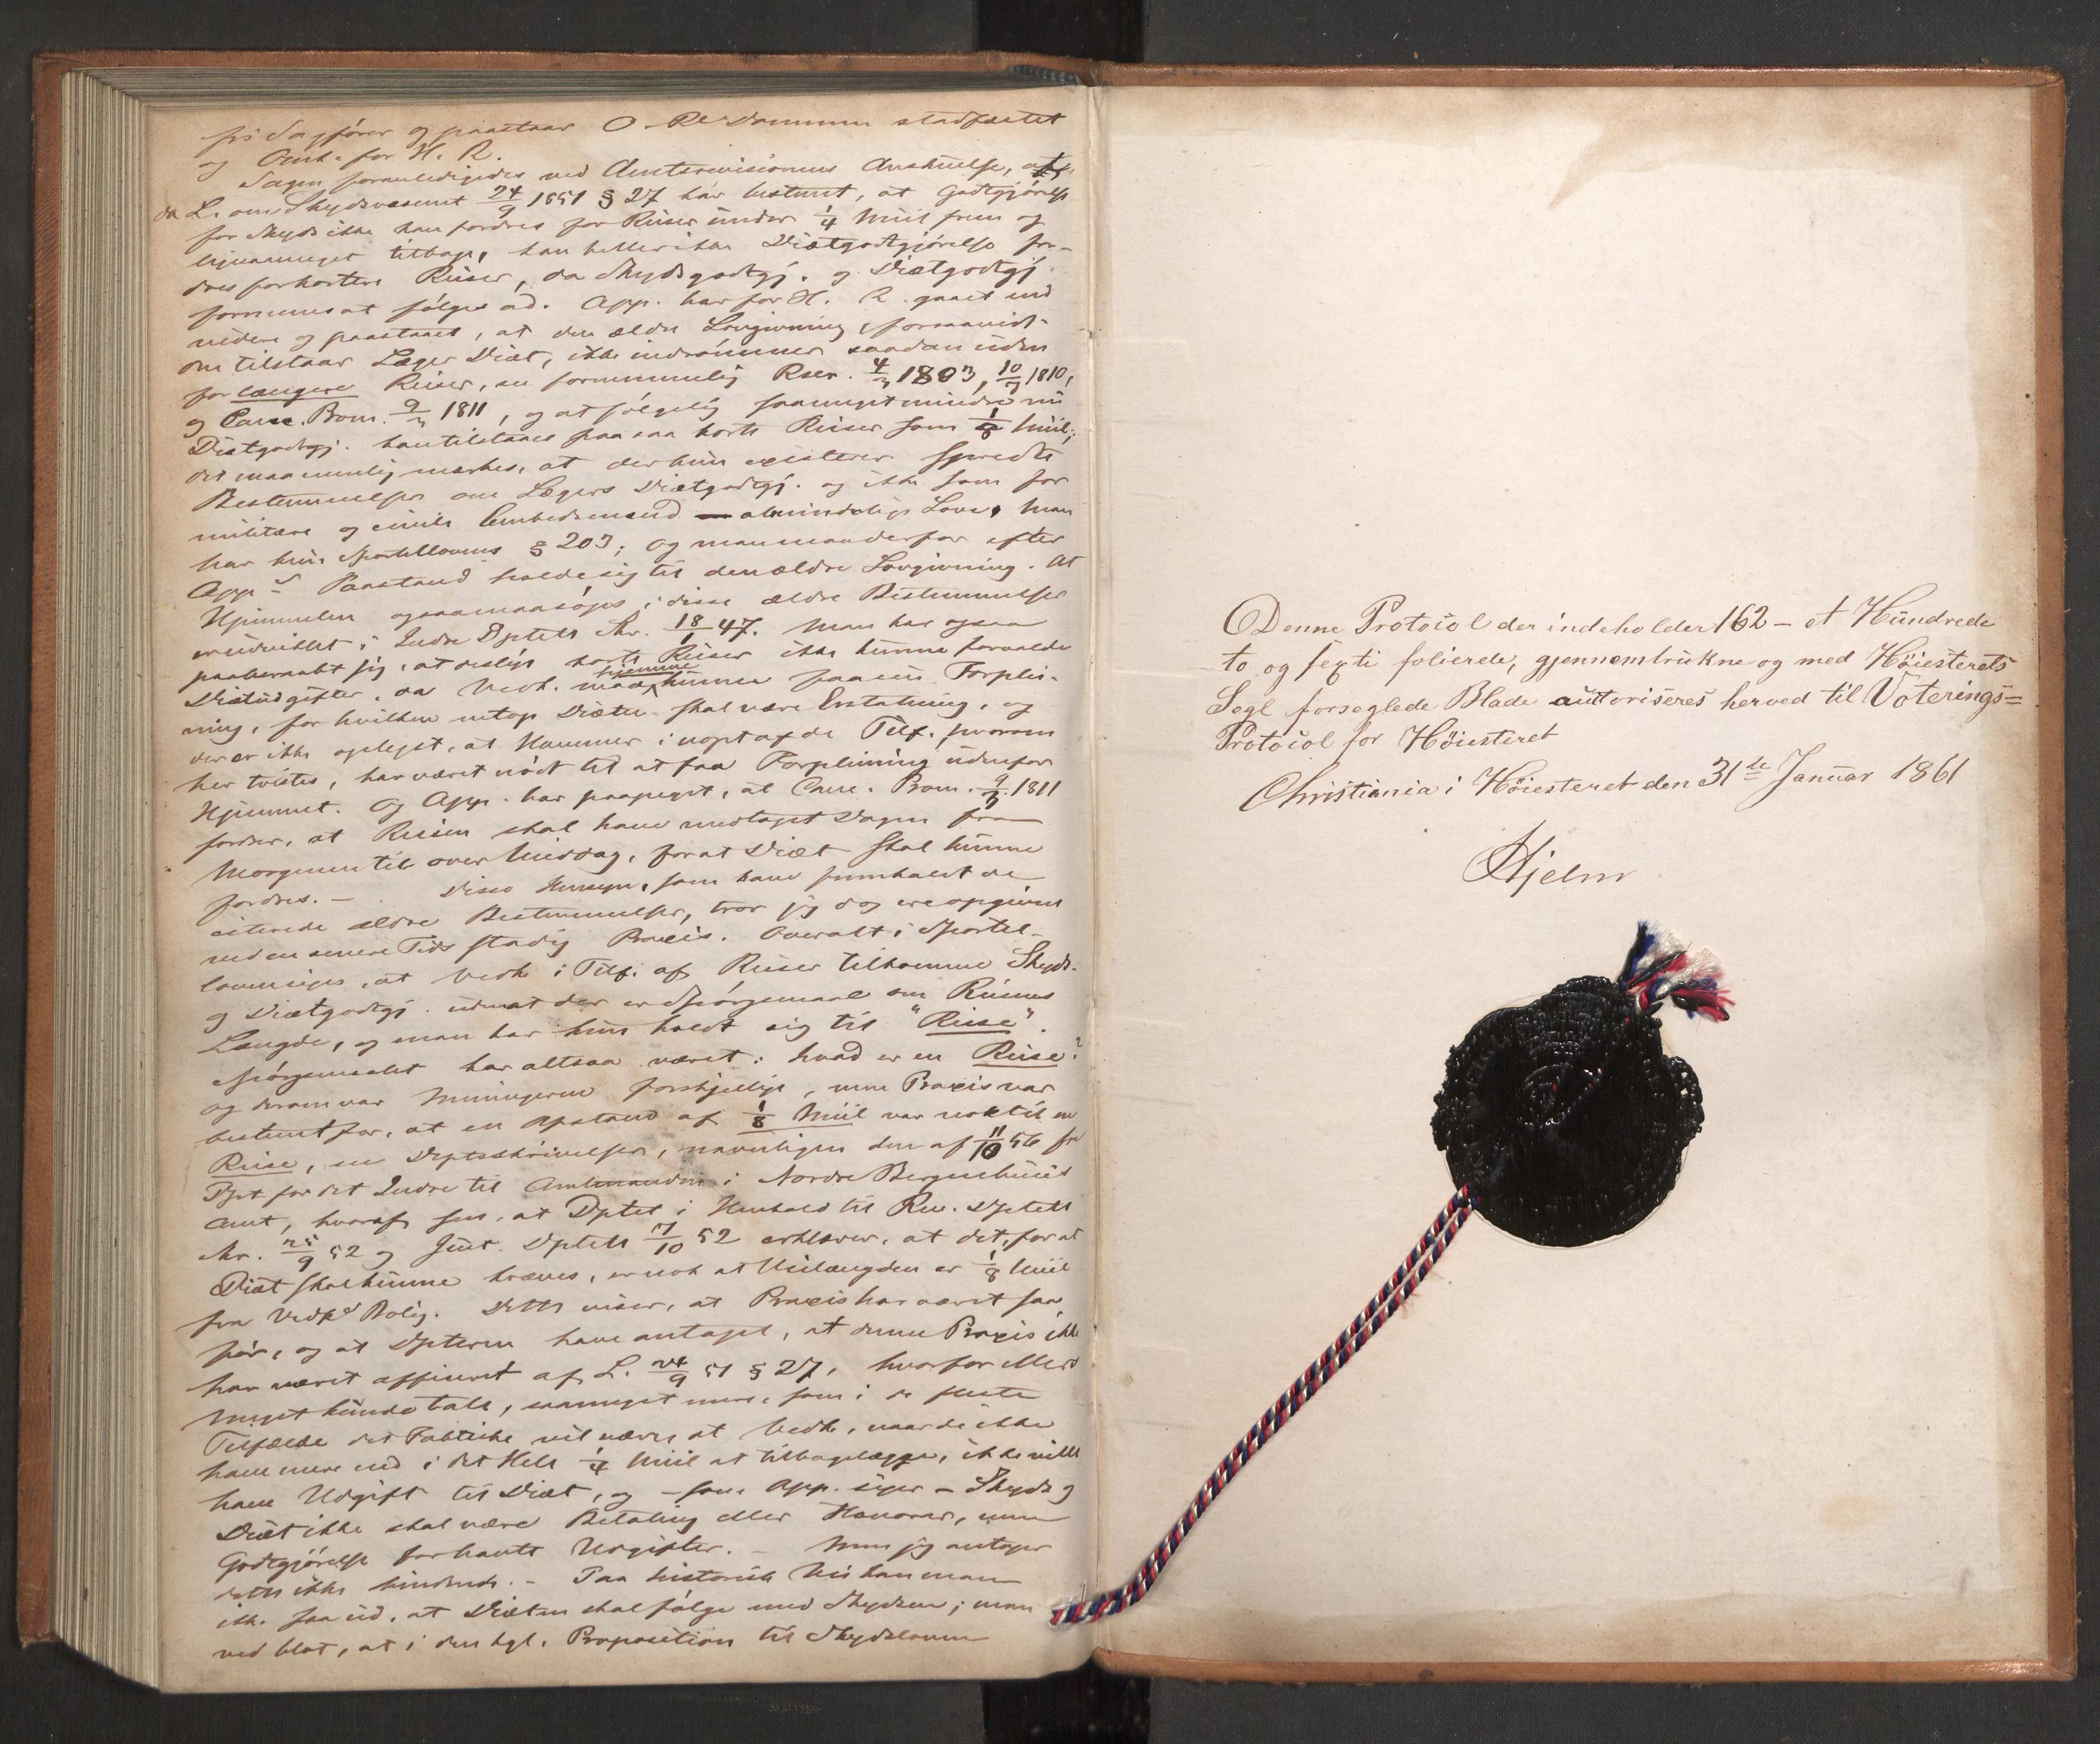 sin Sagfører og paastaar O-Rs Dommen stadfæstet
og Omk. for H. R.
Sagen foranledigedes ved Amtsrevisionens Anskuelse, at,
da L. om Skydsvæsenet 24/9 1851 § 27 har bestemt, at Godtgjørelse
for Skyds ikke kan fordres for Reiser under 1/4 Miil frem og
ligesaameget tilbage, kan heller ikke Diætgodtgjørelse for-
dres for kortere Reiser, da Skydsgodtgj. og Diætgodtgj.
formenes at følges ad. App. har for H. R. gaaet end
videre og paastaaet, at den ældre Lovgivning, forsaavidt
den tilstaar Læger Diæt, ikke indrømmer saadan uden
for længere Reiser, se fornemmelig Rser. 4/3 1803, 10/7 1810,
og Canc. Prom. 9/3 1811, og at følgelig saameget mindre nu
Diætgodtgj. kan tilstaaes paa saa korte Reiser som 1/8 Miil;
det maa nemlig mærkes, at der kun existerer spredte
Bestemmelser om Lægers Diætgodtgj. og ikke som for
militære og civile Embedsmænd — almindelige Love. Man
har kun Sportellovens § 203; og man maa derfor efter
App.s Paastand holde sig til den ældre Lovgivning. At
Hjemmelen ogsaa maa søges i disse ældre Bestemmelser
er udviklet i Indre Dptets Skr. 18/1 47. Man har ogsaa
paaberaabt sig, at deslige korte Reiser ikke kunne forvolde
Diætudgifter, da Vedk. maa hjemme kunne faa sin Forplei-
ning, for hvilken netop Diæten skal være Erstatning, og
der er ikke oplyst, at Hammer i noget af de Tilf. hvorom
her tvistes, har været nødt til at faa Forpleining udenfor
Hjemmet. Og App. har paapeget, at Canc. Prom. 9/3 1811
fordrer, at Reisen skal have medtaget Dagen fra
Morgenen til over Middag, for at Diæt skal kunne
fordres. – Disse Hensyn, som have fremkaldt de
citerede ældre Bestemmelser, tror jeg dog ere opgivne
ved en senere Tids stadig Praxis. Overalt i Sportel-
loven siges, at Vedk. i Tilf. af Reiser tilkomme Skyds-
og Diætgodtgj. uden at der er Spørgsmaal om Reisens
Længde, og man har kun holdt sig til "Reise".
Spørgsmaalet har altsaa været: hvad er en Reise?
og derom var Meningerne forskjellige, men Praxis var
bestemt for, at en Afstand af 1/8 Miil var nok til en
Reise, se Dptsskrivelser, navnligen den af 11/10 56 fra
Dpt for det Indre til Amtmanden i Nordre Bergenhuus
Amt, hvoraf sees, at Dptet i Henhold til Rev. Dptets
Skr. 25/9 52 og Just. Dptets 7/10 52 erklærer, at det, for at
Diæt skal kunne kræves, er nok at Veilængden er 1/8 Miil
fra Vedks Bolig. Dette viser, at Praxis har været saa
før, og at Dpterne have antaget, at denne Praxis ikke
har været afficeret af L. 24/9 51 § 27, hvorfor ellers
meget kunde tale, saameget mere, som i de fleste
Tilfælde det Faktiske vil være, at Vedk., naar de ikke
have mere end i det Hele 1/4 Miil at tilbagelægge, ikke ville
have Udgift til Diæt, og – som App. siger – Skyds og
Diæt ikke skal være Betaling eller Honorar, men
Godtgjørelse for havte Udgifter. – Men jeg antager
dette ikke bindende. – Paa historisk Vei kan man
ikke faa ud, at Diæten skal følge med Skydsen; man
ved blot, at i den kgl. Proposition til Skydsloven
Denne Protocol der indeholder 162 – et Hundrede
to og sexti folierede, gjennemtrukne og med Høiesterets
Segl forseglede Blade auttoriseres herved til Voterings=
Protocol for Høiesteret
Christiania i Høiesteret den 31te Januar 1861
Hjelm